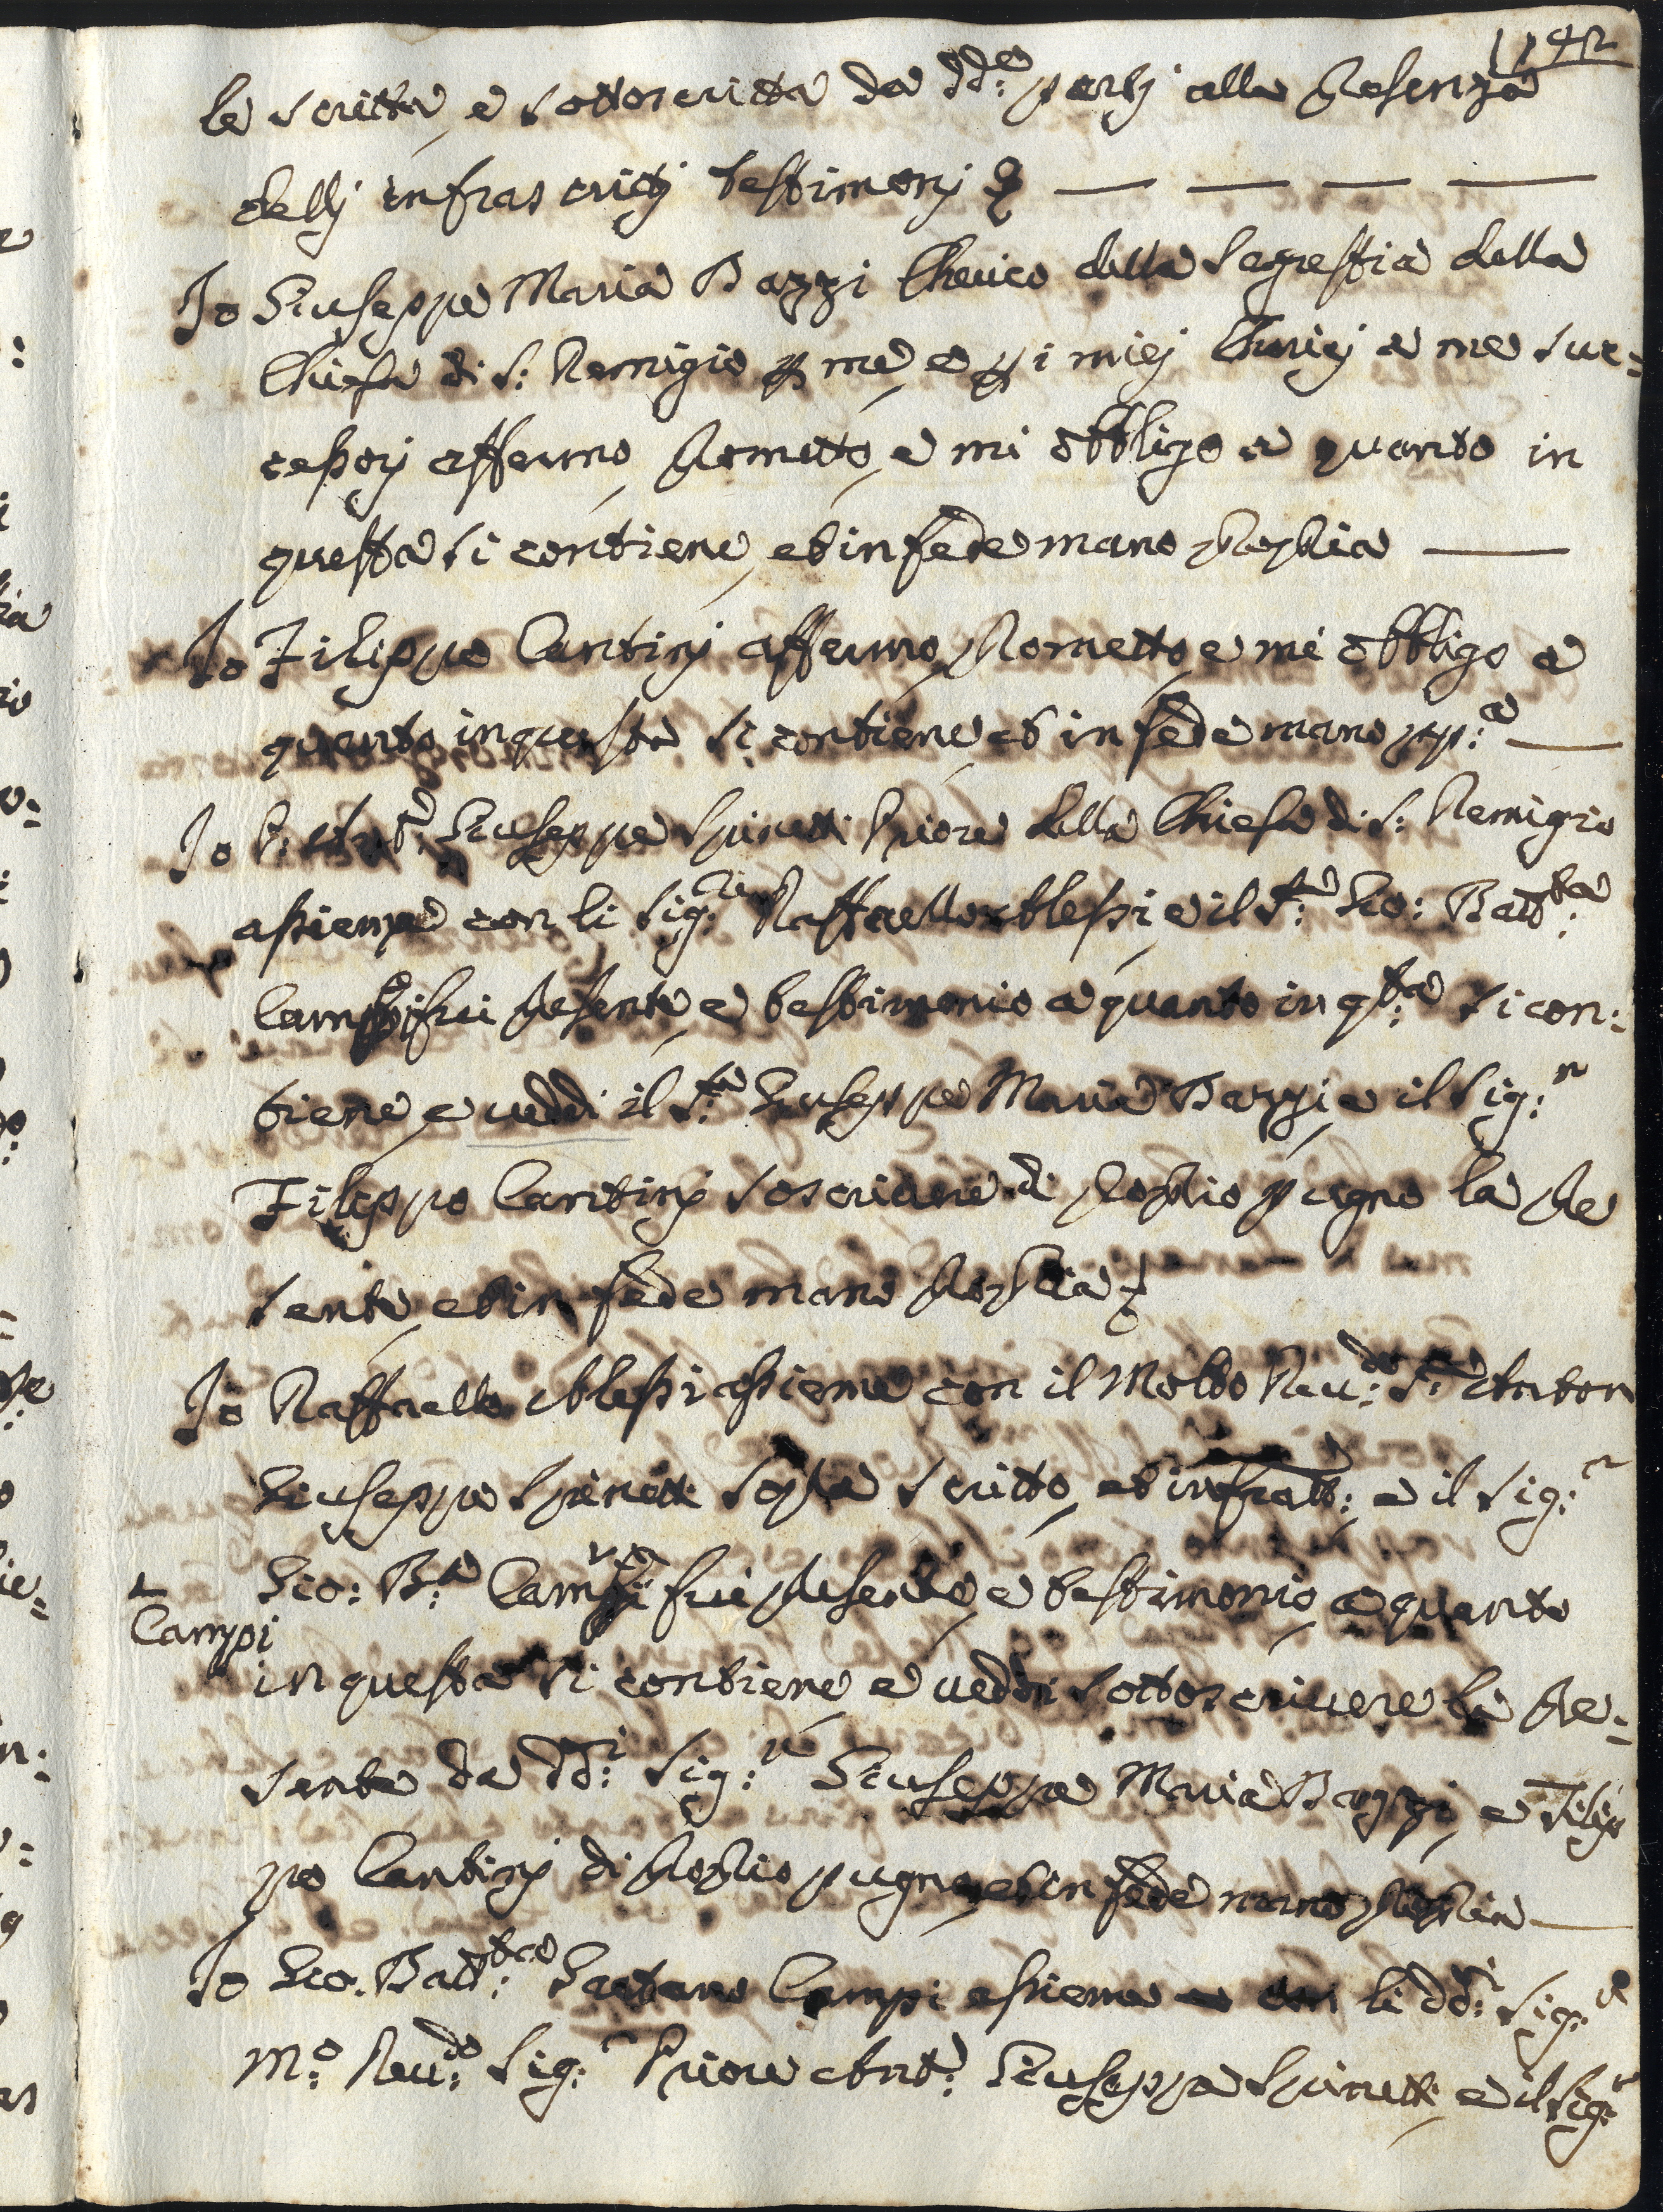 42
le scritta, e sottoscritta da dd:e partj alla presenza
dellj infrascrittj testimonj
Io Giuseppe Maria Bazzi Cherico della Sagrestia della
Chiesa di S: Remigio p me, e p i miej Chericj a me suc=
cessorj affermo, prometto, e mi obbligo a quanto in
questa si contiene, et in fede mano propria
Io Filippo Cantinj affermo, prometto, e mi obbligo a
quanto in questa si contiene, et in fede mano pp:a
Io P: Ant:o Giuseppe Spinetti Priore della Chiesa di S: Remigio
assieme con li Sig:ri Raffaello Alessi, e il S:r Gio: Batt:ta
Campi fui presente, e testimonio a quanto in q:ta si con:
tiene, e veddi il S:r Giuseppe Maria Bazzi, e il Sig:r
Filippo Cantinj soscrivere di proprio pugno la pre
sente, et in fede mano propria
Io Raffaello Alessi assieme con il Molto Reu:do S:r Anton
Giuseppe Spinetti sopra scritto, et infratto: e il Sig:r
Gio: B:a Campi fui presente, e testimonio, a quanto
Campi
in questa si contiene, e veddi sottoscrivere la pre=
sente da dd:i Sig:ri Giuseppe Maria Bazzi, e Filip
po Cantinj di proprio pugno, et in fede mano propria
Io Gio. Batt:ta Gaetano Campi assieme con li dd:i Sig:ri
M:o Reu:do Sig:r Priore Ant:o Giuseppe Spinetti, e il Sig:r